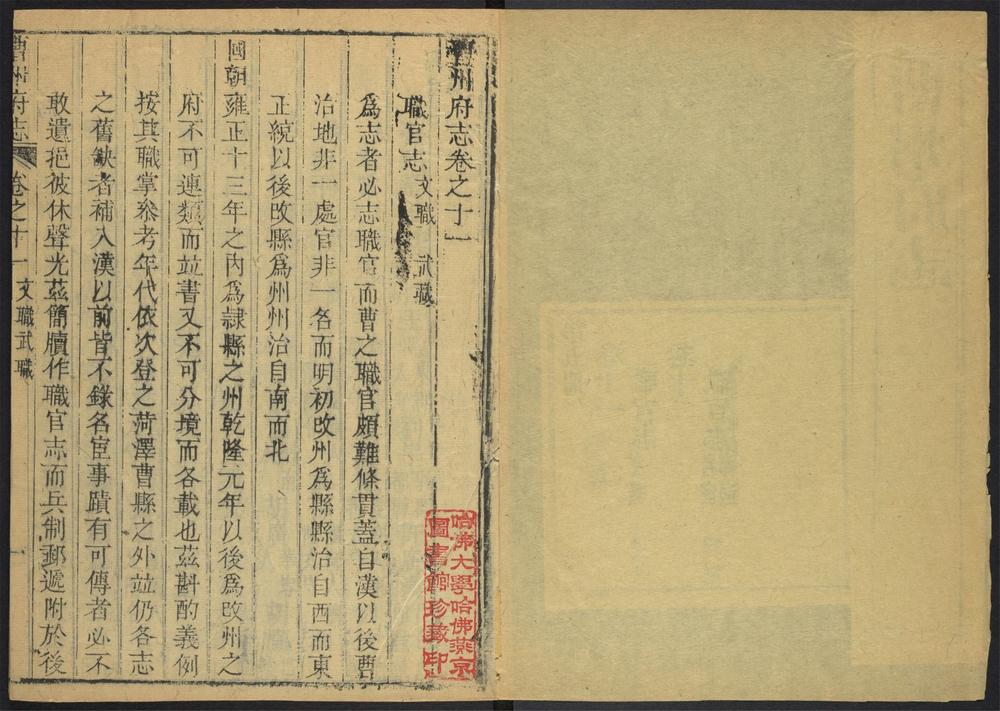 曹州府志卷之十一
職官志 文職 武職
爲志者必志職官而曹之職官頗難條貫蓋自漢以後曹
治地非一處官非一名而明初改州爲縣縣治自西而東
正統以後改縣爲州州治自南而北
國朝雍正十三年之內爲隷縣之州乾隆元年以後爲改州之
府不可連類而竝書又不可分境而各載也茲斟酌義例
按其職掌叅考年代依次登之菏澤曹縣之外竝仍各志
之舊缺者補入漢以前皆不錄名宦事蹟有可傳者必不
敢遺挹彼休聲光茲簡牘作職官志而兵制郵遞附於後
曹州府志 卷之十一 文職武職 一
哈佛大學哈佛燕京
圖書館珍藏印